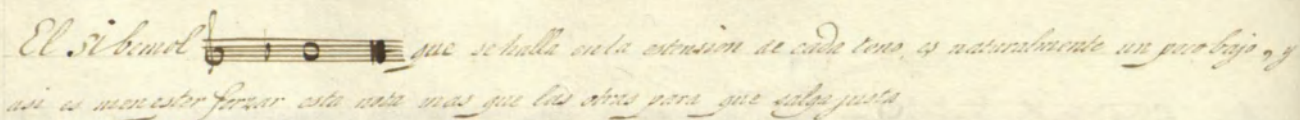 El si bemol que se halla en la estension de cada tono, es naturalmente un poco bajo, y
asi es menester forzar esta nota mas que las otras para que salga justa